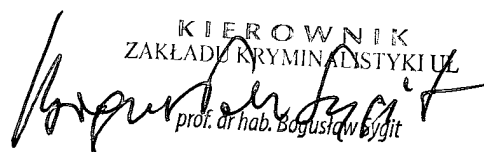 KIEROWNIK
ZAKŁADU KRYMINALISTYKI UŁ
Bogusław Sygit
prof. dr hab. Bogusław Sygit